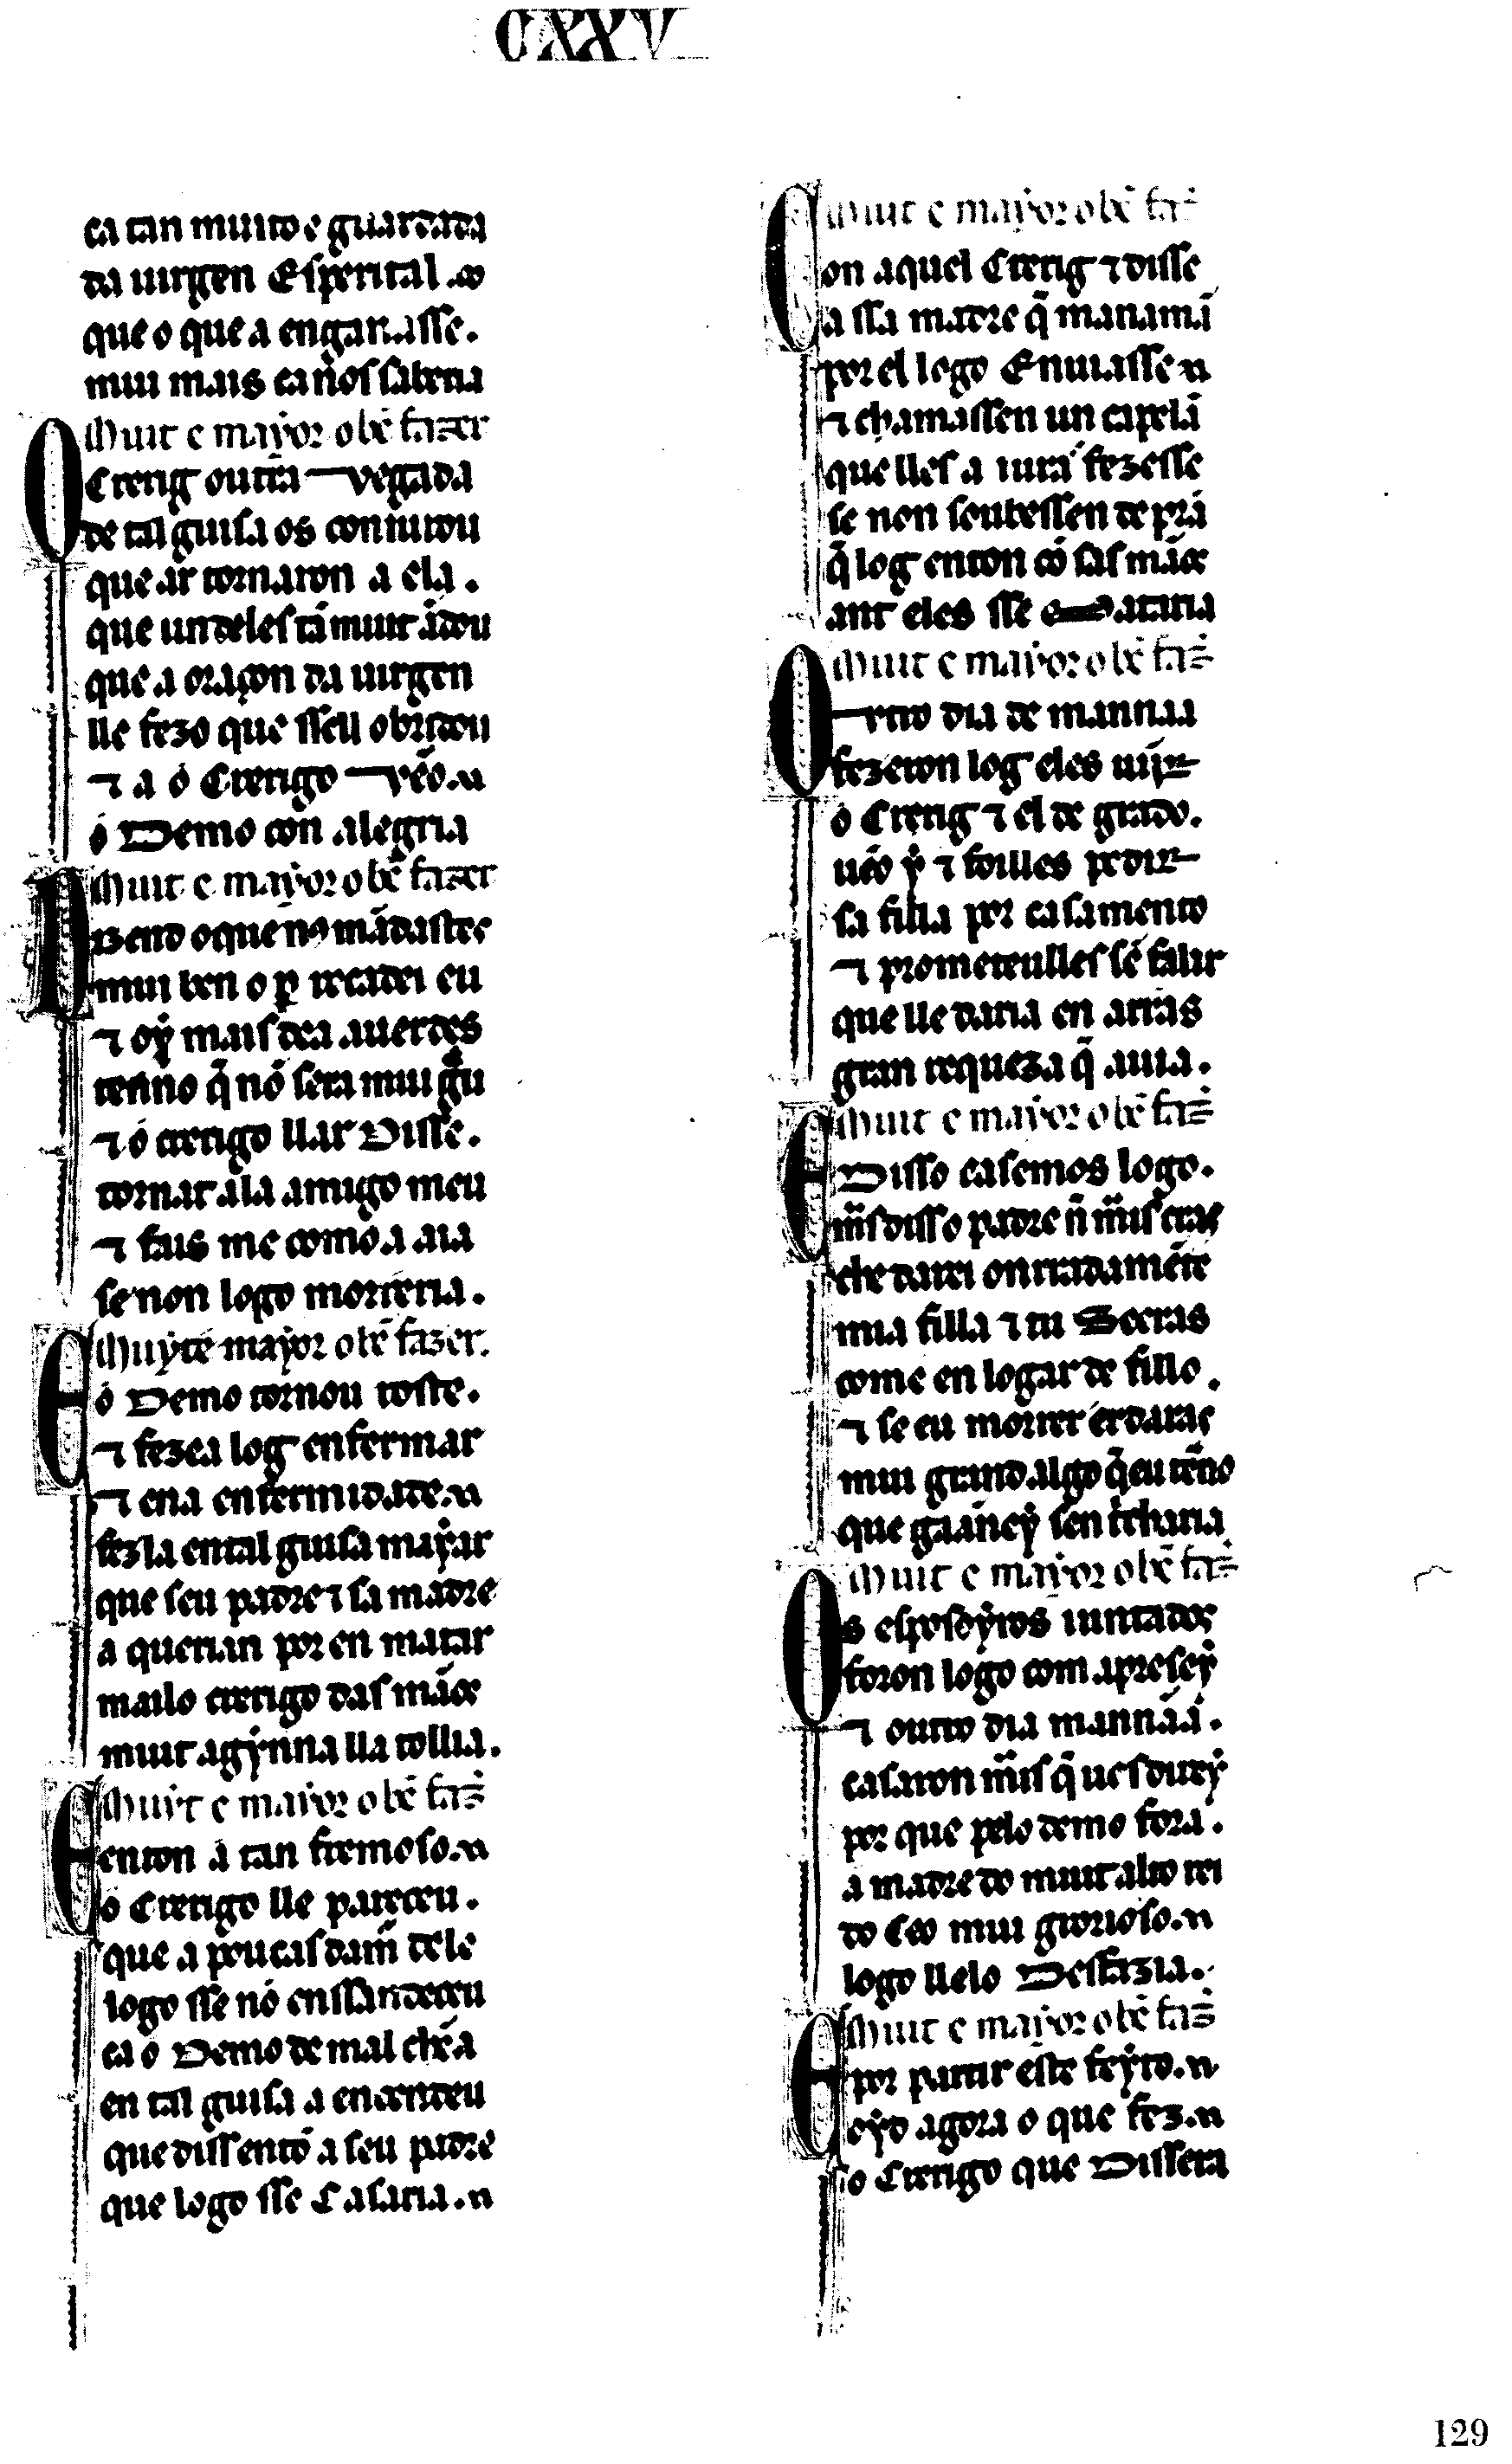 CXXV
ca tan muito e guardada
da uirgen Esperital.
que o que a enganasse.
mui mais ca nos saberia
Muit e mayor o bẽ fazer
O Crerig outra vegada
de tal guisa os coniurou
que ar tornaron a ela.
que un deles tã muit ãdou
que a oraçon da uirgen
lle fezo que ssell obridou
⁊ a o Crerigo vẽo.
o Demo con alegria
Muit e mayor o bẽ fazer
Dizend o que nos mãdastes
mui ben o ꝑ recadei eu
⁊ oy mais dea auerdes
tenno q̃ nõ sera mui g̃u
⁊ o crerigo llar Disse.
tornar ala amigo meu
⁊ fais me como a aia
se non logo morreria.
Muyt e mayor o bẽ fazer.
E o Demo tornou toste.
⁊ fezea log enfermar
⁊ ena enfermidade.
fezla en tal guisa mayar
que seu padre ⁊ sa madre
a querian por en matar
mailo crerigo das mãos
muit agynna lla tollia.
Muyt e mayor o bẽ faz̃
E enton a tan fremoso.
o Crerigo lle pareceu.
que a poucas dam̃ dele
logo sse nõ enssandeceu
ca o Demo de mal chẽa
en tal guisa a encendeu
que diss entõ a seu padre
que logo sse Casaria.
Muit e mayor o bẽ faz̃
Con aquel Crerig ⁊ disse
a ssa madre q̃ manamã
por el logo Enuiassen
⁊ chamassen un capelã
que lles a iura fezesse
se non soubessen de prã
q̃ log enton cõ sas mãos
ant eles sse mataria
Muit e mayor o bẽ faz̃
Outro dia de mannaa
fezeron log eles uĩjr
o Crerig ⁊ el de grado.
uẽo y ⁊ foilles pedir
sa filla por casamento
⁊ prometeulles sẽ falir
que lle daria en arras
gran requeza q̃ auia.
Muit e mayor o bẽ faz̃
E Disso casemos logo.
m̃s disso padre ñ m̃is cras
che darei onrradamẽte
mia filla ⁊ tu Seeras
come en logar de fillo.
⁊ se eu morrer erdaras
mui grand algo q̃ eu tẽno
que gaaney sen tricharia
Muit e mayor o bẽ faz̃
Os esposoyros iuntados
foron logo com apres ey
⁊ outro dia mannãa.
casaron m̃is q̃ ues durey
por que pelo demo fora.
a madre do muit alto rei
do Ceo mui grorioso.
logo llelo Desfazia.
Muit e mayor o bẽ faz̃
E por partir este feyto.
oyd agora o que fez.
o Crerigo que Dissera
129